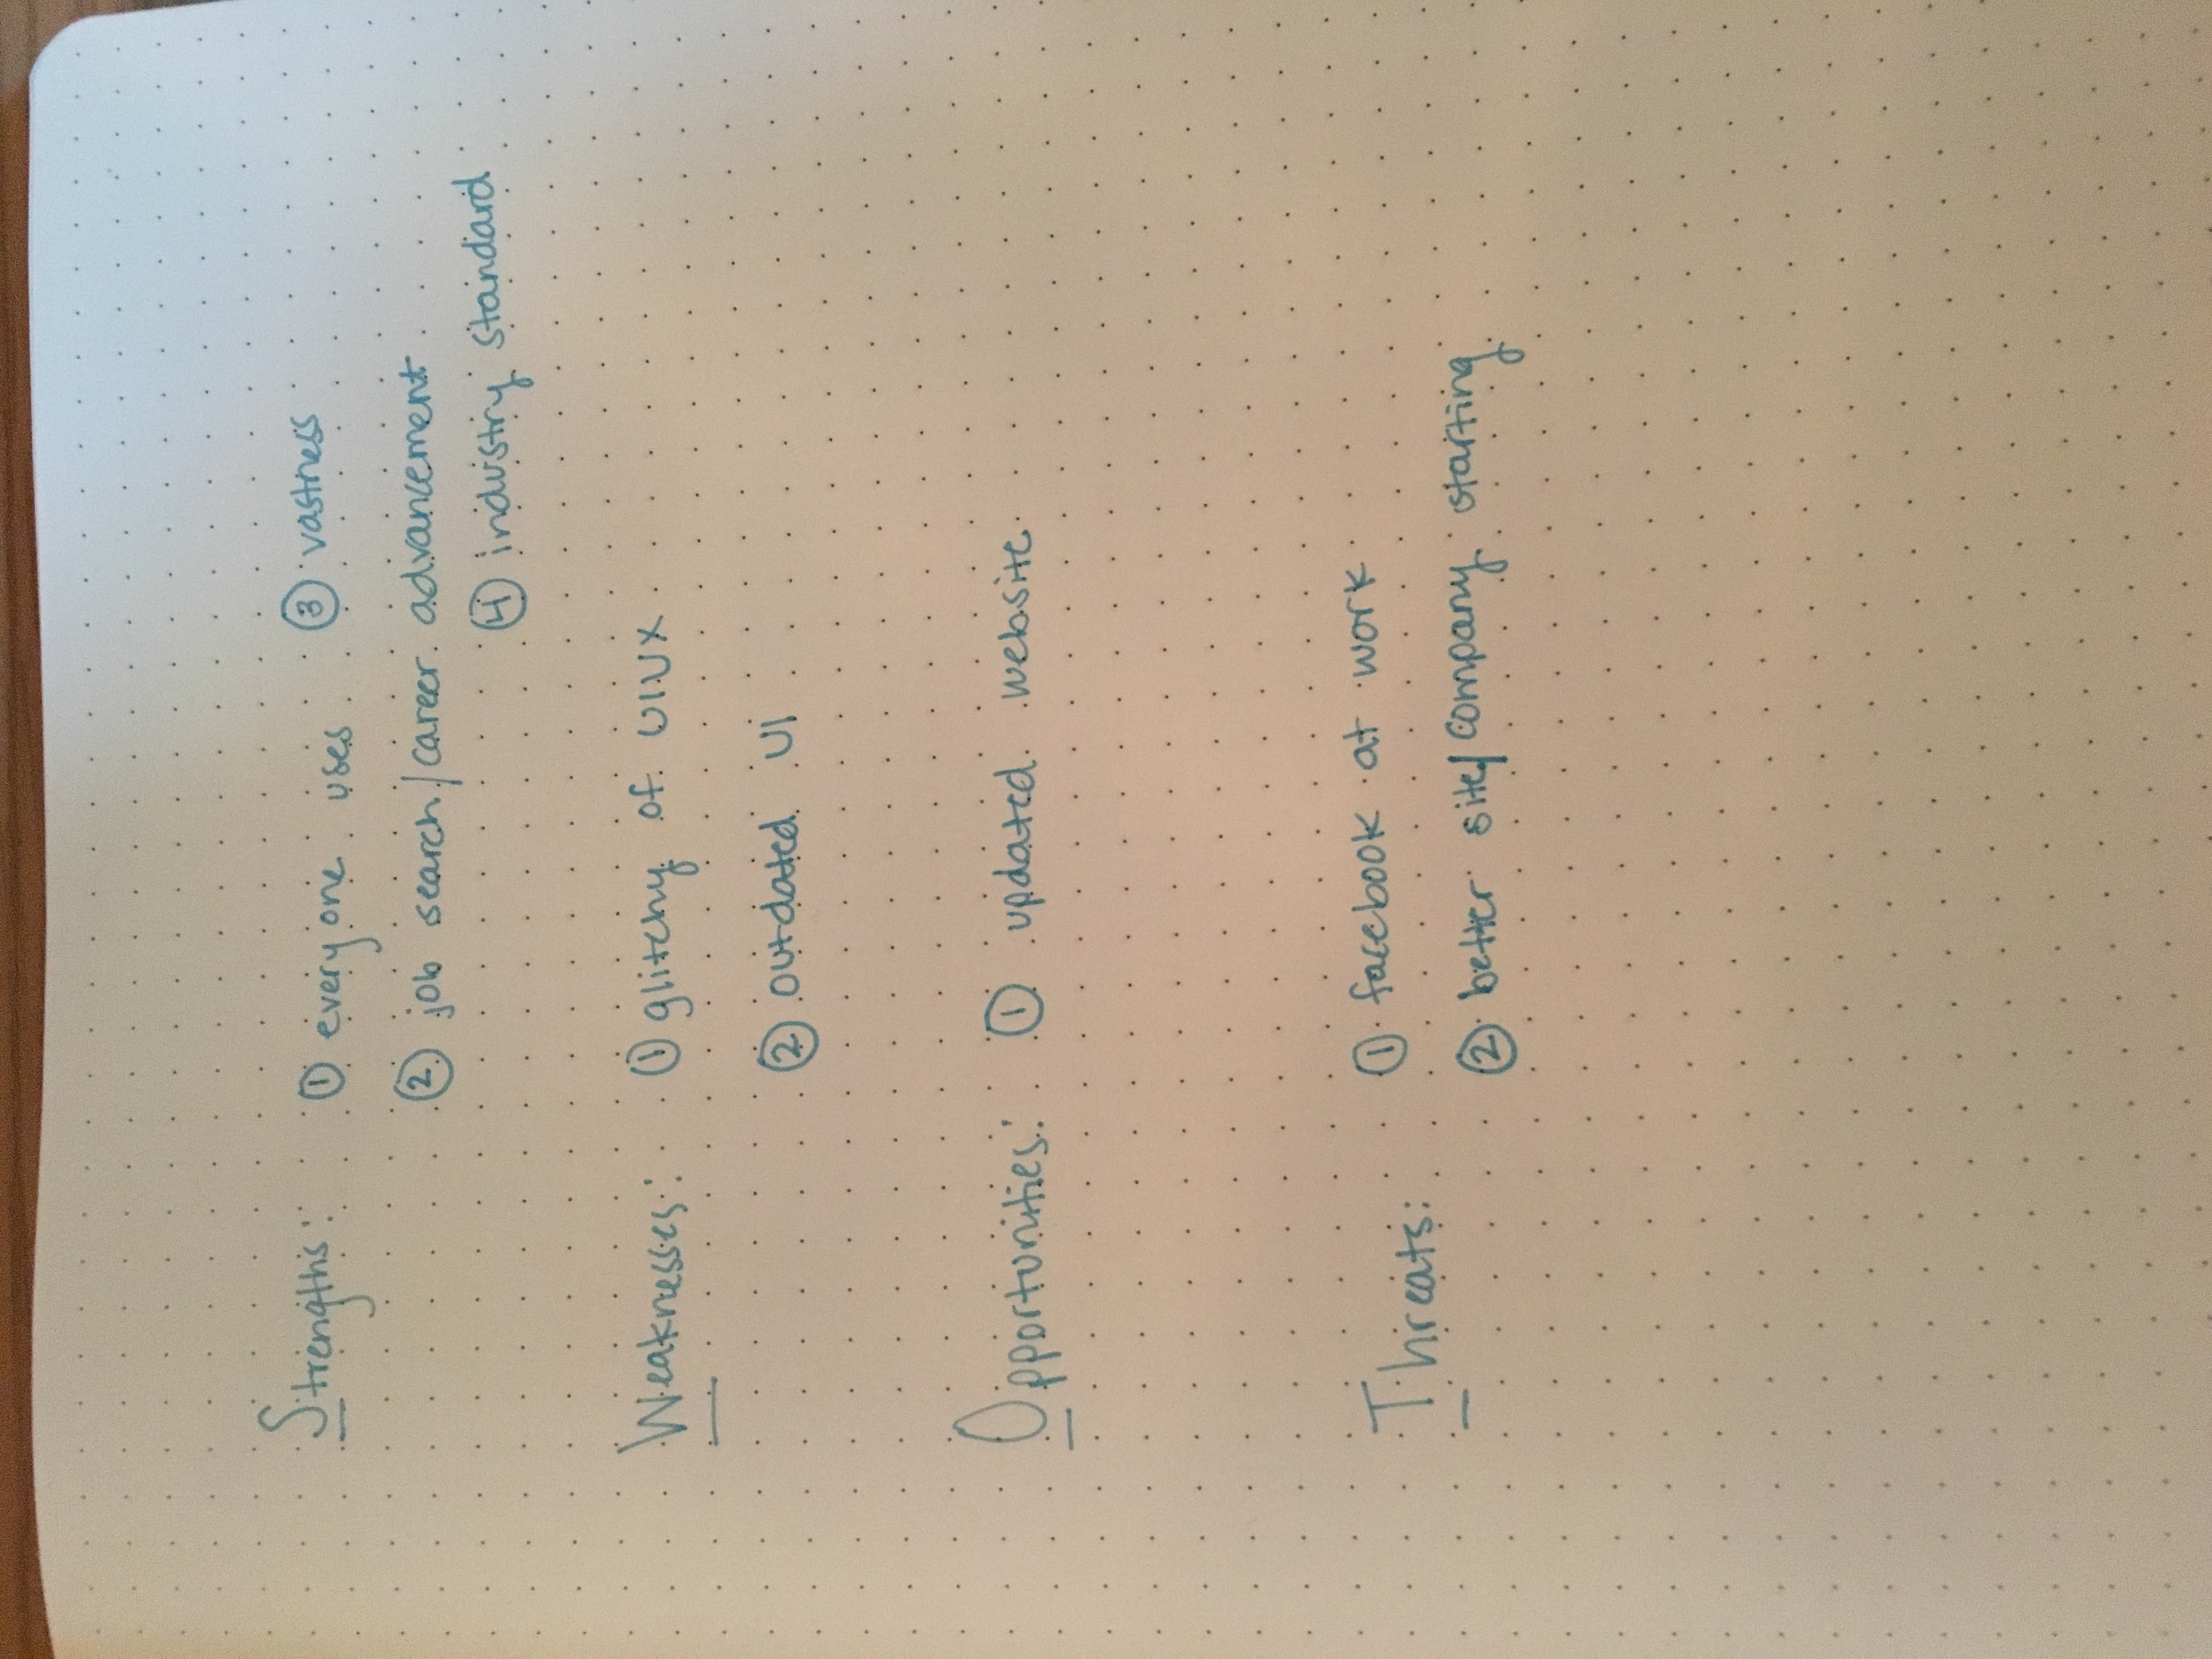 Strengths: ① everyone uses ③ vastness
② job search/career advancement
④ industry standard
Weaknesses: ① glitchy of UIUX
② outdated UI
Opportunities: ① updated website
Threats: ① facebook at work
② better site/company starting